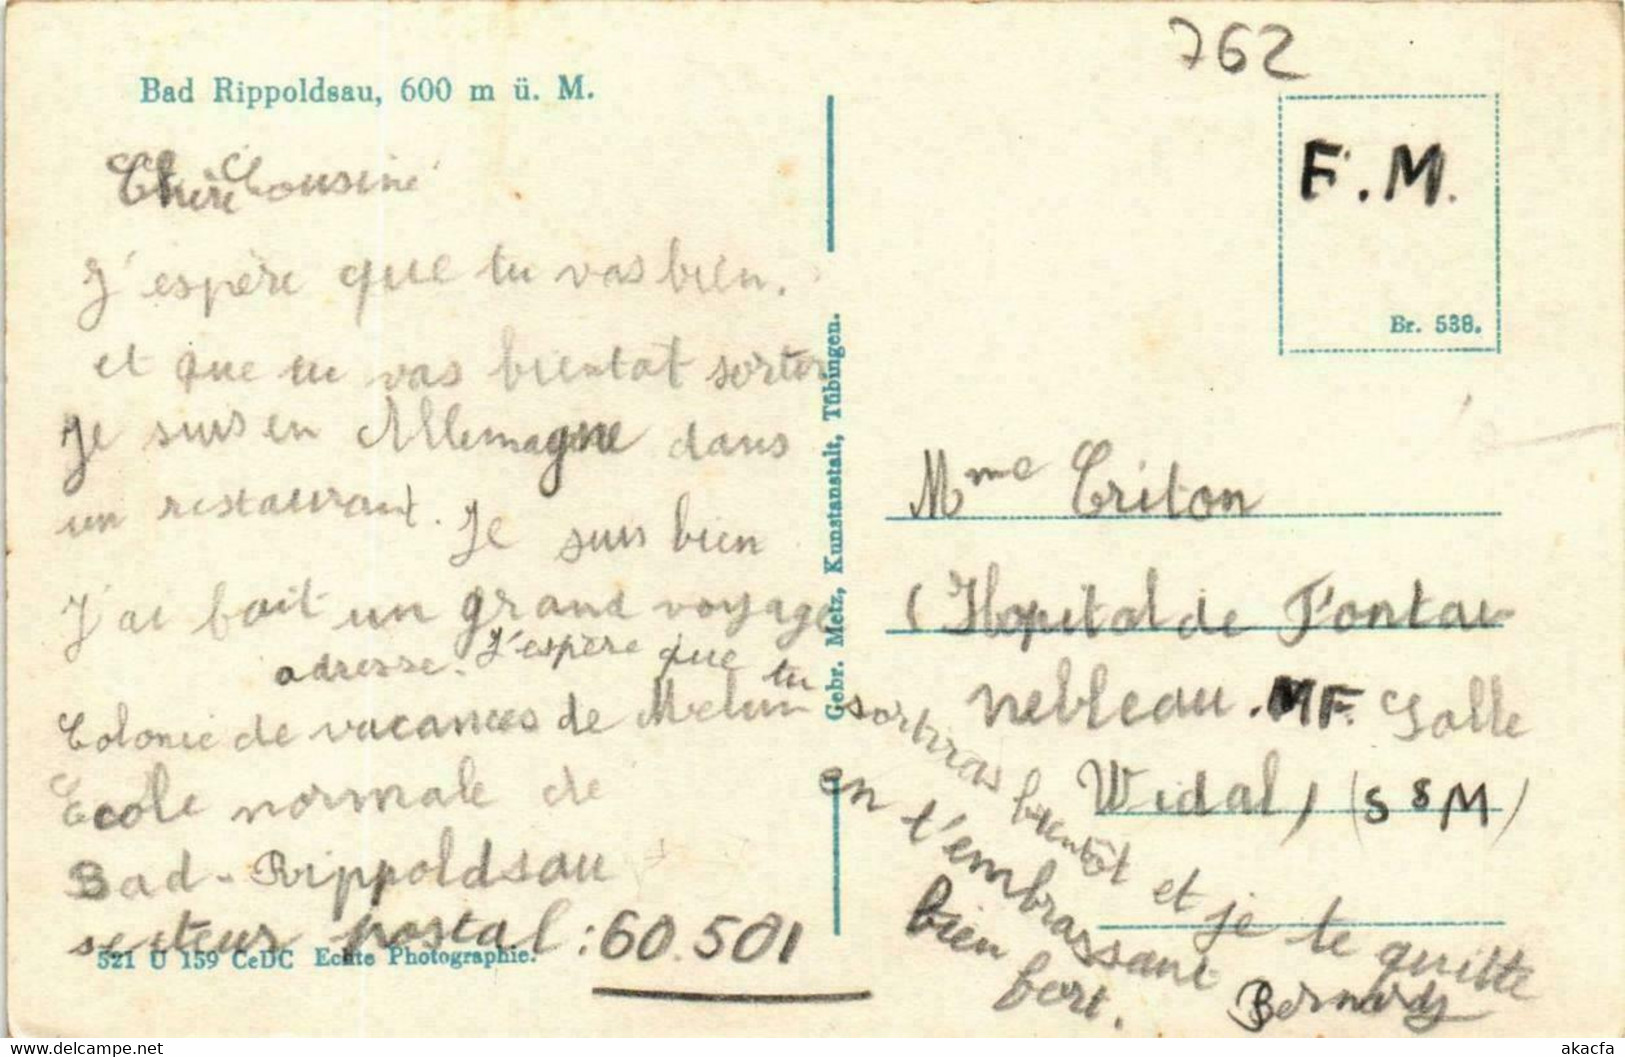 762
Bad Rippoldsau, 600 m ü. M.
F. M.
Br. 538.
Chère Cousine
J'espère que tu vas bien.
et que tu vas bientot sortir
Je suis en Allemagne dans
un restaurant. Je suis bien
J'ai fait un grand voyage
adresse. J'espère que tu
Colonie de vacances de Melun
Ecole normale de
Bad-Rippoldsau
secteur postal : 60.501
521 U 159 CeDC Echte Photographie.
Gebr. Metz, Kunstanstalt, Tübingen.
Mme Criton
(Hopital de Fontai-
nebleau. MF. Salle
Widal) (SSM)
sortiras bientôt et je te quitte
en t'embrassant
bien fort.
Bernard
akacfa